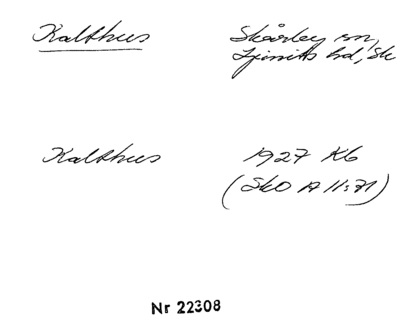 Kalthus Skårby sn,
Ljunits hd, Sk
Kalthus 1927 Kb
(SkO A 11:71)
Nr 22308